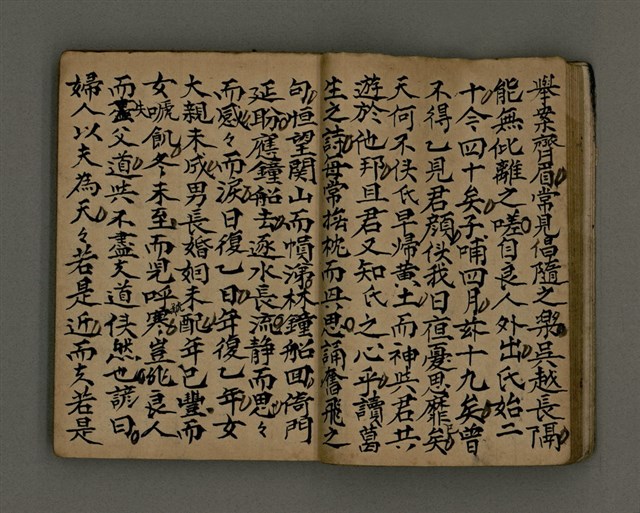 舉案齊眉常見倡隨之樂吳越長隔
能無仳離之嗟自良人外出氏始二
十今四十矣子哺四月茲十九矣曾
不得乙見君顏伖我日亱憂思靡矣
天何不伖氏早帰黄土而神与君共
遊於他邦且君又知氏之心乎讀葛
生之詩毎常撫枕而興思誦奮飛之
句恒望関山而愩涕林鐘船囬倚門
延盼應鐘船去逐水長流静而思々
而感々而淚日復乙日年復乙年女
大親未成男長婚姻未配年已豐而
女嗁飢冬未至而児呼寒豈非良人
而盡失父道與不盡夫道伖然也諺曰
婦人以夫為天々若是近而夫若是
號